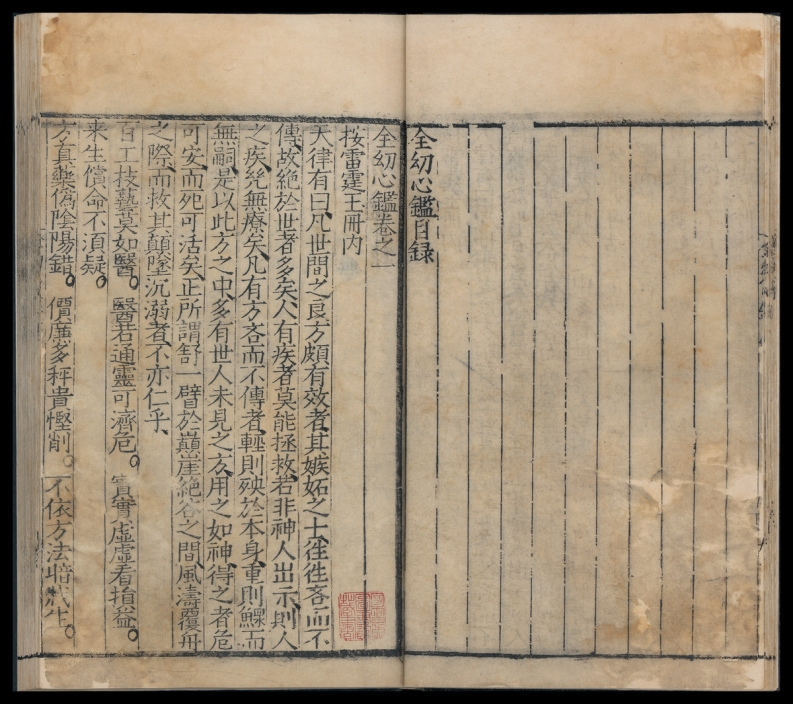 全幼心鑑目録
全幼心鑑卷之一
按雷霆玉冊内
天律有曰凡世間之良方頗有效者其嫉妬之士徃徃吝而不
傳故絶於世者多矣人有疾者莫能拯救若非神人出示則人
之疾𠒋無療矣凡有方吝而不傳者輕則殃於本身重則鰥而
無嗣是以此方之中多有世人未見之方用之如神得之者危
可安而死可活矣正所謂舒一臂於巔崖絶谷之間風濤覆舟
之際而救其顛墜沉溺者不亦仁乎
百工技藝莫如醫。醫若通靈可濟危。實實虛虛看損益。
来生償命不須疑。
方真藥僞陰陽錯。價廉多秤貴慳削。不依方法暗戕生。